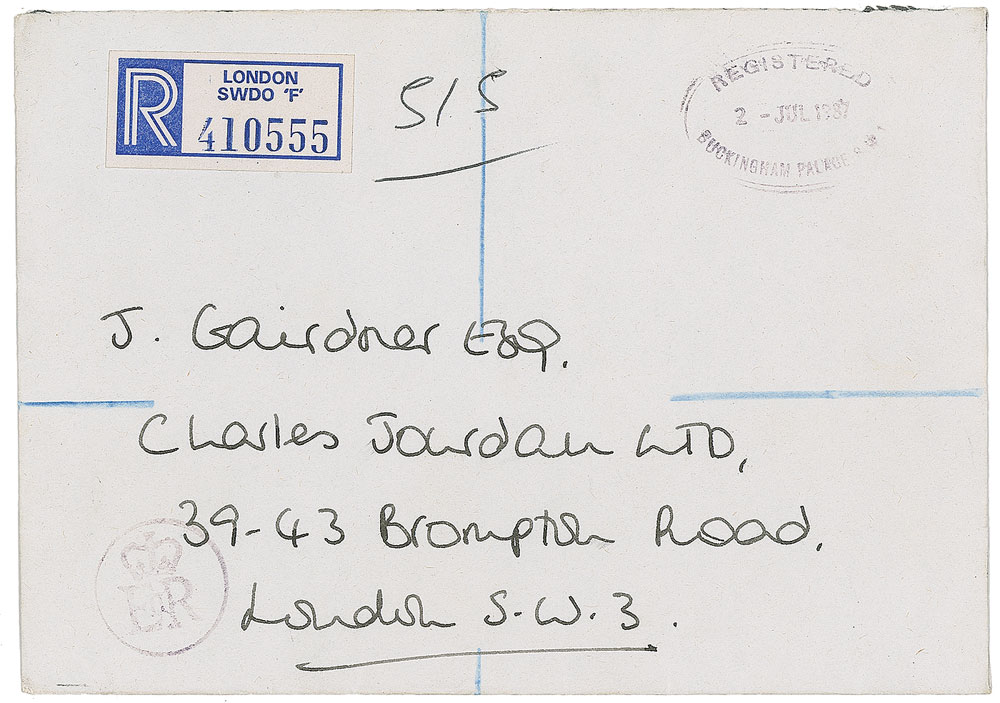 R
LONDON
SWDO 'F'
410555
S/S
REGISTERED
2 - JUL 1987
BUCKINGHAM PALACE S.W.1
J. Gairdner Esq.
Charles Jourdan LTD,
39-43 Brompton Road,
London S.W.3.
ER